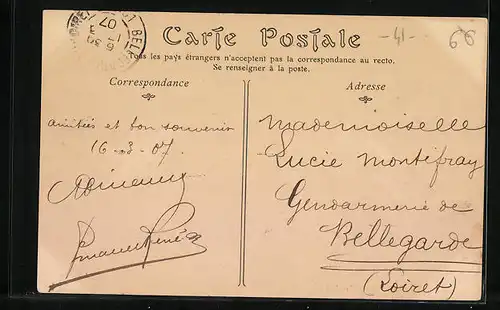 Carte Postale
-41-
66
Tous les pays étrangers n'acceptent pas la correspondance au recto.
Se renseigner à la poste.
Correspondance
Adresse
amitiés et bon souvenir
16-3-07
Mademoiselle
Lucie Montifray
Gendarmerie de
Bellegarde
(Loiret)